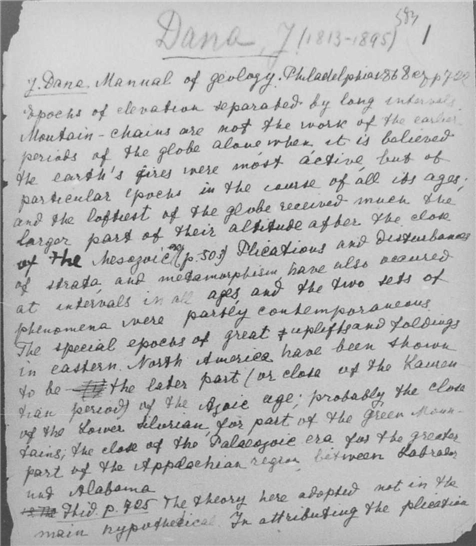 Dana, J (1813-1895)
1
J. Dana. Manual of geology. Philadelphia 1868 p 722
Epochs of elevation separated by long intervals.
Moutain-chains are not the work of the earlier
periods of the globe alone when it is believed
the earth's fires were most active, but of
particular Epochs in the course of all its ages.
and the loftiest of the globe received much the
larger part of their altitude after the close
of the Mesozoic (p. 503) Plications and disturbances
of strata, and metamorphism have also occured
at intervals in all ages, and the two sets of
phenomena were partsly contemporaneous
The special epochs of great uplifts and foldings
in eastern North America have been shown
to be the later part (or close of the Lauren-
tian period) of the Azoic age; probably the close
of the Lower Silurian, for part of the Green Moun-
tains; the close of the Palaeozoic era for the greater
part of the Appalachian region between Labrador
und Alabama
Ibid. p. 725 The theory here adopted not in the
main hypothetical. In attributing the plication